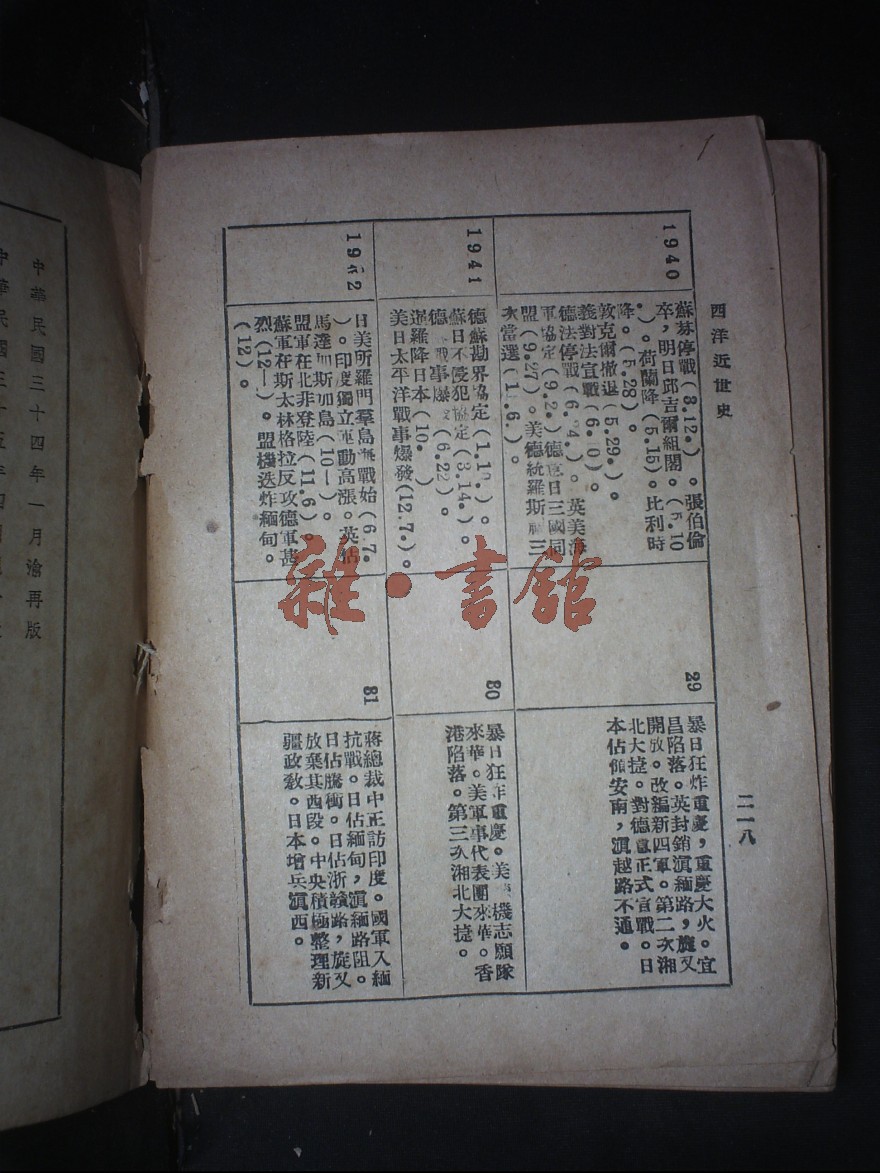 西洋近世史
二一八
1940
蘇芬停戰(3.12.)。張伯倫
卒，明日邱吉爾組閣。(5.10
.)。荷蘭降(5.15)。比利時
降。(5.28)。
敦克爾撤退(5.29.)。
義對法宣戰(6.
德法停戰(6.
英美海
軍協定(9.2.)德意日三國同
盟(9.27)。美德統羅斯福三
次當選(1
29
暴日狂炸重慶，重慶大火。宜
昌陷落。英封銷滇緬路，旋又
開放。改編新四軍。第二次湘
北大捷。對德意正式宣戰。日
本佔領安南，滇越路不通。
1941
德蘇勘界協定(1.1
蘇日不侵犯協定(3.14.)。
德
戰事爆
(6.22)。
暹羅降日本(10.
美日太平洋戰事爆發(12.7.)。
30
暴日狂炸重慶。美
機志願隊
來華。美軍事代表團來華。香
港陷落。第三次湘北大捷。
1942
日美所羅門羣島海戰始(6.7.
)。印度獨立運動高漲。英佔
馬達加斯加島(10—)。
盟軍在北非登陸(11.6)。
蘇軍在斯太林格拉反攻德軍甚
烈(12—)。盟機迭炸緬甸。
(12)。
31
蔣總裁中正訪印度。國軍入緬
抗戰。日佔緬甸，滇緬路阻。
日佔騰衝。日佔浙贛路，旋又
放棄其西段。中央積極整理新
疆政教。日本增兵滇西。
中華民國三十四年一月渝再版
中華民國三十五年四月
雜·書館